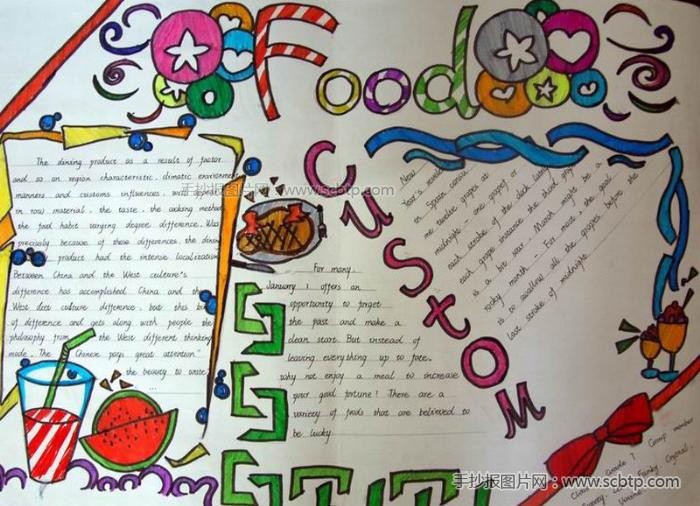 Food
CUStOM
The dining product as a result of factor
and so on region characteristic, climatic environment
manners and customs influences, will appear
in raw material, the taste, the cooking method
the food habit varying degree difference. Was
precisely because of these differences, the dining
product had the intense localization
Between China and the West culture's
difference has accomplished China and the
West diet culture difference, but this
of difference and gets along with people the
philosophy from the West different thinking
mode. The Chinese pays great attention"
the beauty to unite
For many,
January 1 offers an
opportunity to forget
the past and make a
clean start. But instead of
leaving everything up to fate,
why not enjoy a meal to increase
your good fortune! There are a
variety of foods that are believed to
be lucky
New
Year's
in Spain
twelve grapes at
midnight - one grape
each stroke of the clock
each grape the third
is a bad year March might be a
rocky month. For most, the goal
is to swallow all the grapes before the
last stroke of midnight
Grade 7 Camp member
手抄报图片网 www.scbtp.com
手抄报图片网：www.scbtp.com
手抄报图片网：www.scbtp.com